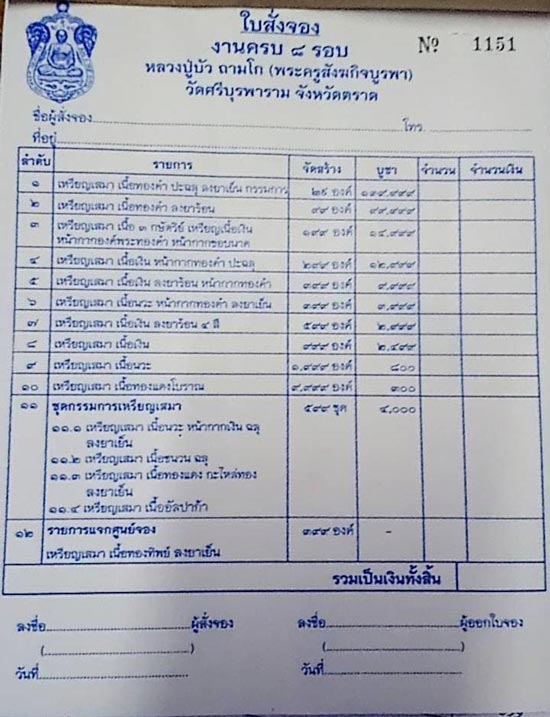 ใบสั่งจอง
งานครบ ๘ รอบ
หลวงปู่บัว ถามโก (พระครูสังฆกิจบูรพา)
วัดศรีบุรพาราม จังหวัดตราด
№ 1151
ชื่อผู้สั่งจอง โทร.
ที่อยู่
ลำดับ รายการ จัดสร้าง บูชา จำนวน จำนวนเงิน
๑ เหรียญเสมา เนื้อทองคำ ปะฉลุ ลงยาเย็น กรรมการ ๒๙ องค์ ๑๙๙,๙๙๙
๒ เหรียญเสมา เนื้อทองคำ ลงยาร้อน ๙๙ องค์ ๙๙,๙๙๙
๓ เหรียญเสมา เนื้อ ๓ กษัตริย์ เหรียญเนื้อเงิน ๑๙๙ องค์ ๑๔,๙๙๙
หน้ากากองค์พระทองคำ หน้ากากขอบนาค
๔ เหรียญเสมา เนื้อเงิน หน้ากากทองคำ ปะฉลุ ๒๙๙ องค์ ๑๒,๙๙๙
๕ เหรียญเสมา เนื้อเงิน ลงยาร้อน หน้ากากทองคำ ๓๙๙ องค์ ๙,๙๙๙
๖ เหรียญเสมา เนื้อนวะ หน้ากากทองคำ ลงยาเย็น ๓๙๙ องค์
๗ เหรียญเสมา เนื้อเงิน ลงยาร้อน ๔ สี ๕๙๙ องค์ ๒,๙๙๙
๘ เหรียญเสมา เนื้อเงิน ๙๙๙ องค์ ๒,๔๙๙
๙ เหรียญเสมา เนื้อนวะ ๑,๙๙๙ องค์ ๘๐๐
๑๐ เหรียญเสมา เนื้อทองแดงโบราณ ๙,๙๙๙ องค์ ๓๐๐
๑๑ ชุดกรรมการเหรียญเสมา ๕๙๙ ชุด ๔,๐๐๐
๑๑.๑ เหรียญเสมา เนื้อนวะ หน้ากากเงิน ฉลุ
ลงยาเย็น
๑๑.๒ เหรียญเสมา เนื้อชนวน ฉลุ
๑๑.๓ เหรียญเสมา เนื้อทองแดง กะไหล่ทอง
ลงยาเย็น
๑๑.๔ เหรียญเสมา เนื้ออัลปาก้า
๑๒ รายการแจกศูนย์จอง ๓๙๙ องค์ -
เหรียญเสมา เนื้อทองทิพย์ ลงยาเย็น
รวมเป็นเงินทั้งสิ้น
ลงชื่อ ผู้สั่งจอง ลงชื่อ ผู้ออกใบจอง
( ) ( )
วันที่ วันที่